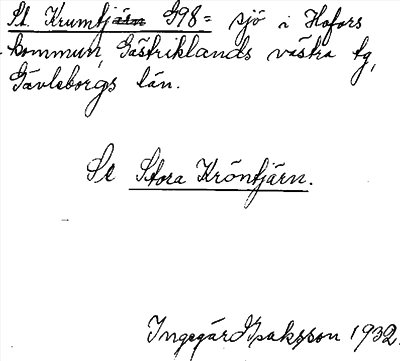 St. Krumtjärn G98 = sjö i Hofors
kommun, Gästriklands västra tg,
Gävleborgs län.
Se Stora Kröntjärn.
Ingegär Isaksson 1932.